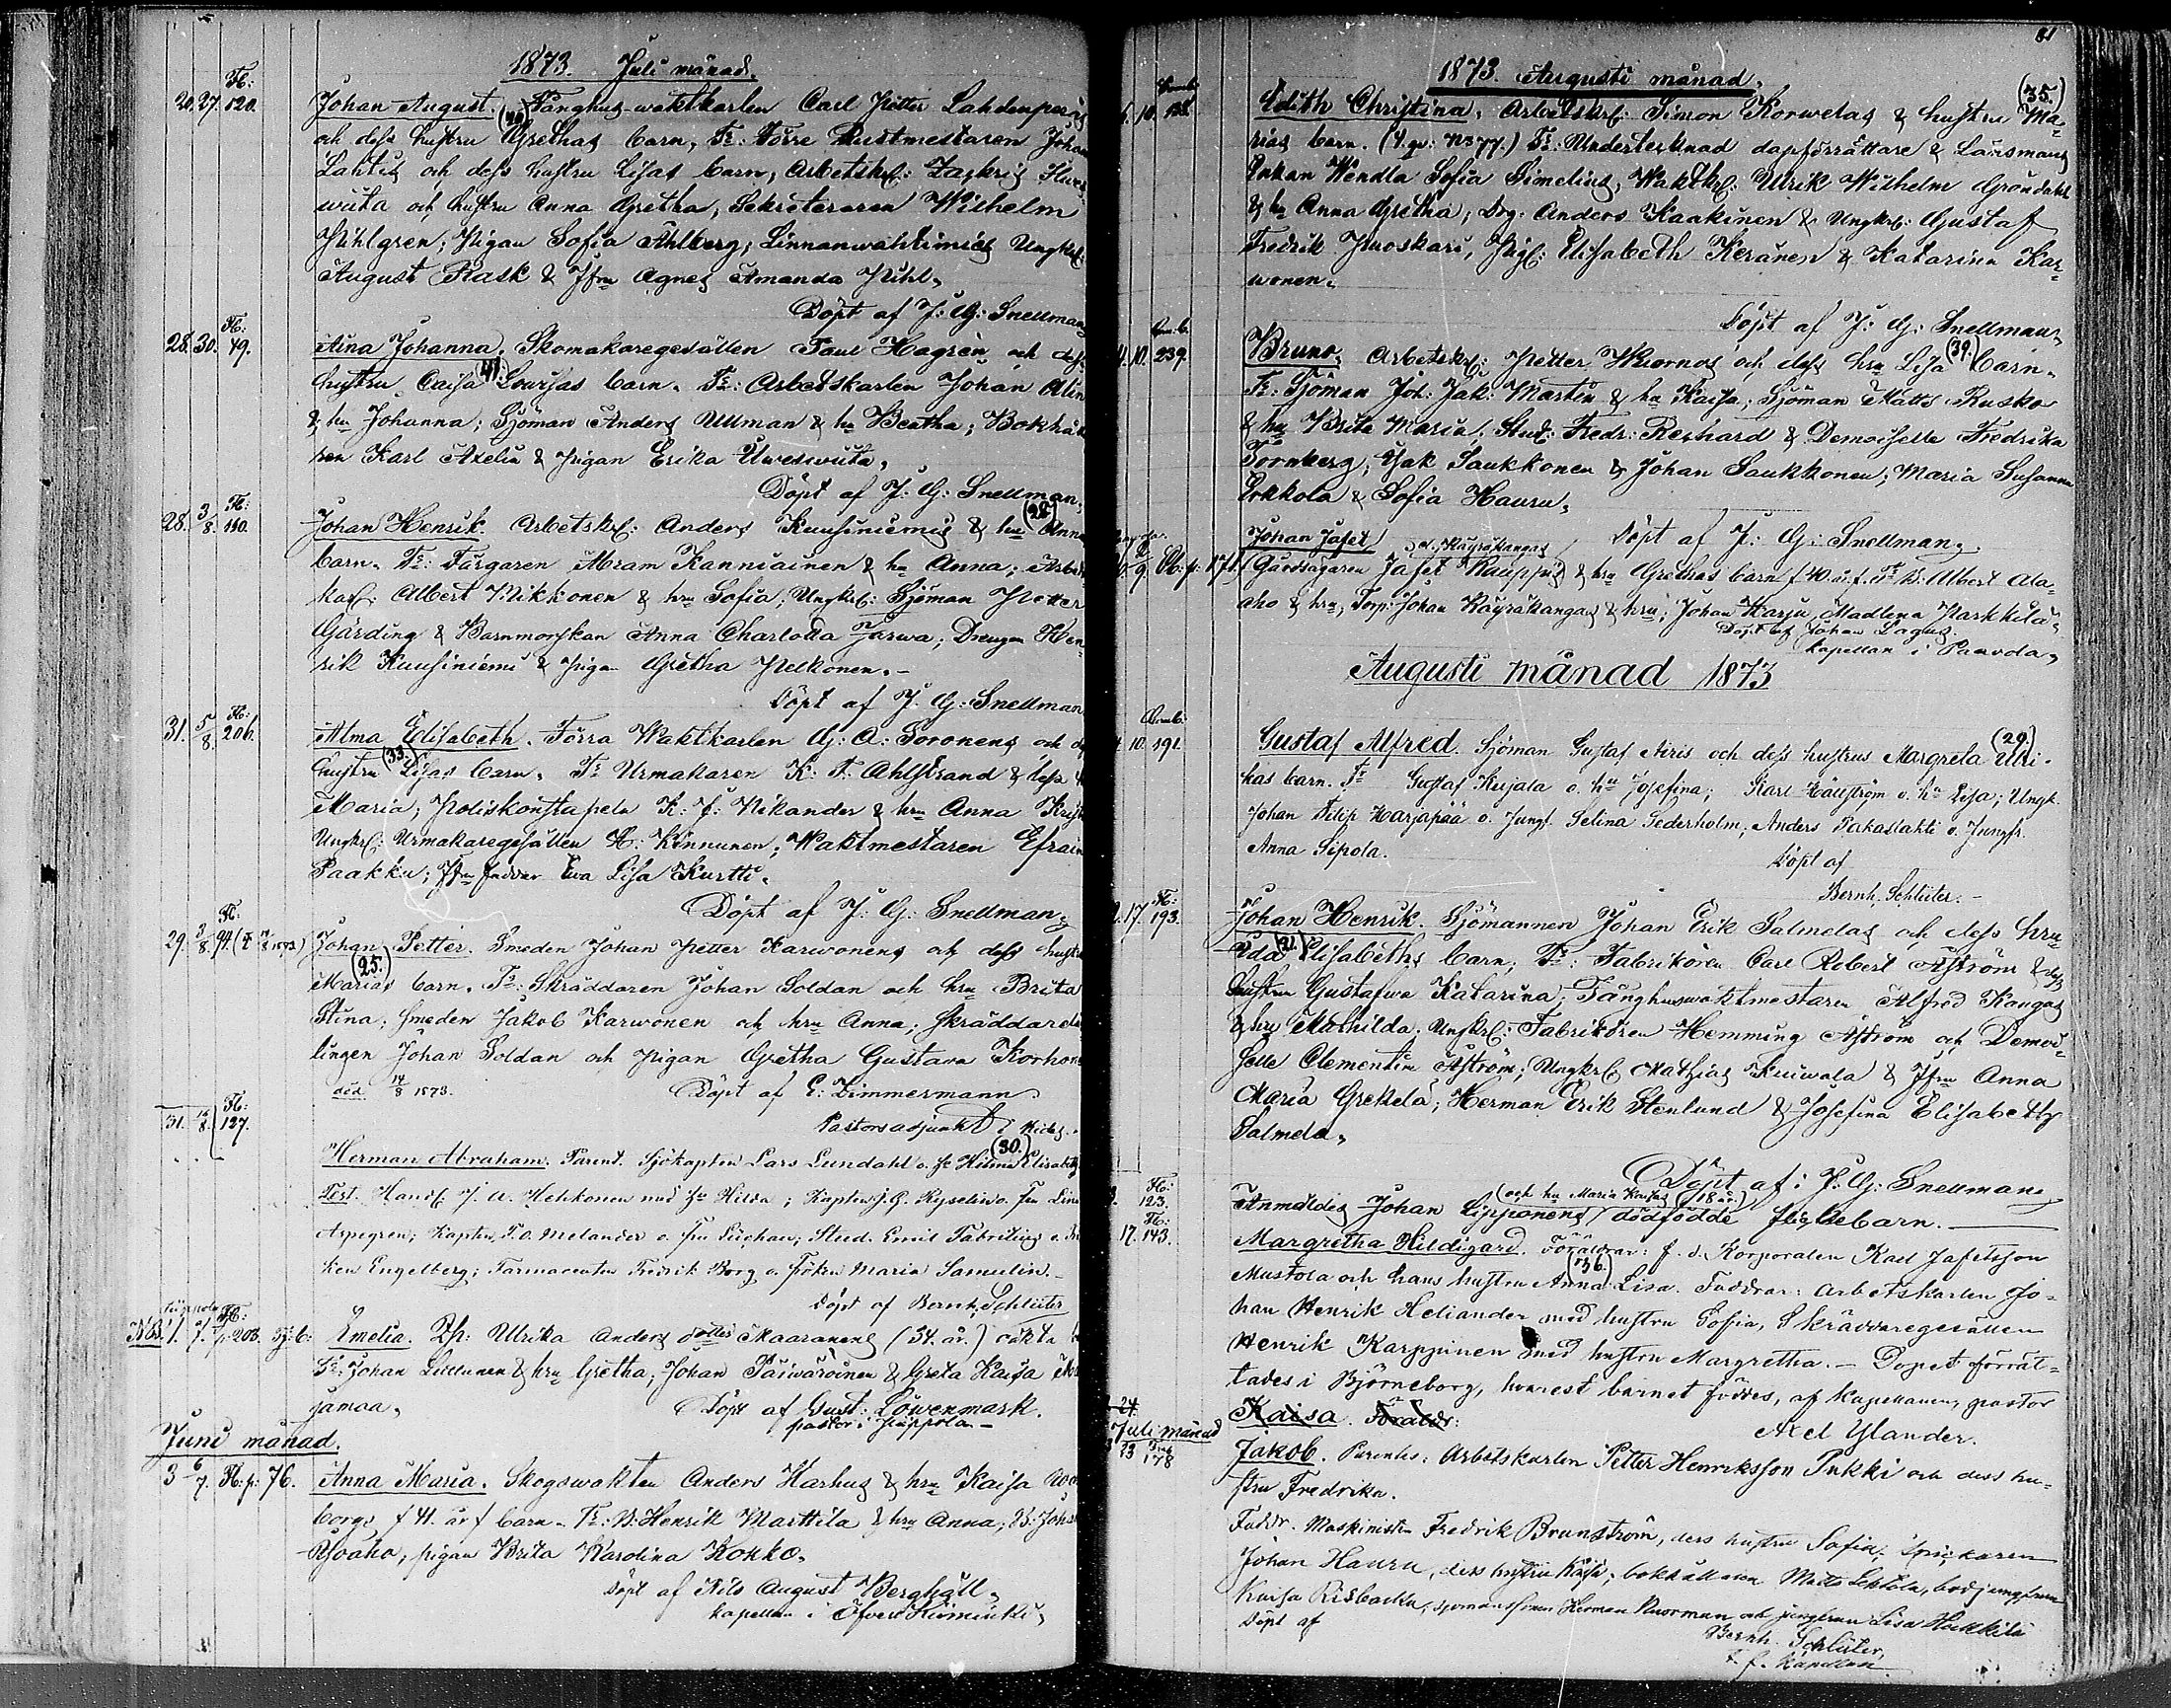 1873. Juli månad.
20. 27. Fl: 120. Johan August. Fånghus waktkarlen Carl Petter Lahdenperäs
och dess hustru Grethas barn, Fr: Förre Rustmestaren Johan
Lahtis och dess hustru Lisas barn, Arbetskrl:
och hustru Anna Gretha, Sekreteraren Wilhelm
Pihlgren; Pigan Sofia Ahlberg; Ungkrl:
August Rask & Jfrn Agnes Amanda Pihl,
Döpt af J: G: Snellman,
28. 30. Fl: 49. Aina Johanna. Skomakaregesällen Paul Hagren och dess
hustru Caisa (41) Lovisas barn. Fr: Arbetskarlen Johan Alin
& hu Johanna; Sjöman Anders Ullman & hu Beatha; Bokhål
ren Karl Axelin & Pigan Erika
Döpt af J: G: Snellman,
28. 3/8. Fl: 110. Johan Henrik. Arbetskrl: Anders Kuusiniemis & hu (28) Anna
barn. Fr: Färgaren Abram Kanniainen & hu Anna; Arbets
karl: Albert Pikkonen & hru Sofia; Ungkrl: Sjöman Petter
Gärding & Barnmorskan Anna Charlotta Jurwa; Drengen Hen
rik Kuusiniemi & pigan Gretha Pelkonen. -
Döpt af J. G: Snellman
31. 5/8. Fl: 206. Alma Elisabeth. Förra Waktkarlen G: A: Soronens och dess
hustru (33) Lisas barn. Fr Urmakaren K: F. Ahlstrand & dess
Maria; Poliskonstapeln K: J: Nikander & hru Anna
Ungkrl: Urmakaregesällen H: Kinnunen; Waktmestaren Efraim
Paakku; Jfrn Eva Lisa Kurtti.
Döpt af J: G: Snellman,
29. 3/8. Fl: 94. Johan Petter. Smeden Johan Petter Karwonens och dess hustru
(25.) Marias barn. Fr: Skräddaren Johan Soldan och hru Brita
Stina; smeden Jakob Karwonen och hru Anna; Skräddarelä
lingen Johan Soldan och pigan Gretha Gustava Korhonen
död 14/8 1873. Döpt af E: Zimmermann
31. 16/8. Fl: 127. Pastorsadjunkt
Herman Abraham. Parent. Sjökapten Lars Lundahl o. fr Hilma (30.) Elisabeth
Test. Handl: J. A. Hehkonen med fr Hilda; Kapten J. G. Ryselin o. fru
Aspegren; Kapten F. O. Melander o. fru Stud. Emil Fabritius o. Frö
ken Engelberg; Farmaceuten Fredrik Borg o. fröken Maria Samulin.
Döpt af Bernh. Schlüter
NB. 1. p. 203. Emelia. Ulrika Anders dotter Skaaranens (34. år.) oäkta
Fr: Johan & hru Gretha; Johan Päiwäroinen & Greta Kaisa
jämaa, Döpt af Gust: Löwenmark.
pastor i Piippola -
Juni månad.
3 6/7. Fl: p: 76. Anna Maria. Skogswakten Anders Harhus & hru Kaisa
borgs (41. år) barn. Fr: B: Henrik Marttila & hru Anna; B: Johan
pigan Brita Karolina Kokko.
Döpt af Nils August Berghäll,
Kapellan i Öfver Kiiminki,
81
1873. Augusti månad.
6. 10. 128. Edith Christina, Arbetskrl: Simon Korwelas & hustru (35.) Ma=
rias barn. Fr: Undertecknad dopförrättare & Länsmans
Enkan Wendla Sofia Simelius, Waktkrl: Ulrik Wilhelm Gröndahl
& hu Anna Gretha; Drg. Anders Kaakinen & Ungkrl: Gustaf
Fredrik Pigl: Elisabeth Keränen & Katarina Kar=
wonen.
Döpt af J: G: Snellman,
10. 239. Bruno. Arbetskrl: Petter Wiornos och dess hru Lisa (39.) barn.
Fr: Sjöman Joh: Jak: Martin & hu Kaisa; Sjöman Matts Rusko
& hu Brita Maria; Stud: Fredr: Reshard & Demoiselle Fredrika
Tornberg; Isak Saukkonen & Johan Saukkonen; Maria Susanna
Erkkola & Sofia Hauru.
Johan Jafet. Döpt af J: G: Snellman,
p: 171. Gårdsägaren Jafet Kauppis & hru Grethas barn (40. år). Fr: B: Albert Ala=
aho & hru, Torp: Johan Käyräkangas & hru; Johan Harju, Madlena Parkkila,
Döpt af Johan Lagus.
Kapellan i Paavola,
Augusti månad 1873
10. 191. Gustaf Alfred. Sjöman Gustaf Airis och dess hustrus Margreta (29) Ulri-
kas barn. Fr Gustaf Kujala o. hu Josefina; Karl Hällström o. hu Lisa; Ungk.
Johan Filip Harjapää o. Jungf. Selina Sederholm; Anders Pakaslahti o. Jungfr.
Anna Sipola. Döpt af
Bernh. Schlüter. -
17. Fl: 193. Johan Henrik. Sjömannen Johan Erik Salmelas och dess hru
Ida (21) Elisabeths barn; Fr: Fabrikören Carl Robert Åström & dess
hustru Gustafwa Katarina; Fånghuswaktmestaren Alfred Kangas
& hru Mathilda. Ungkrl: Fabrikören Hemming Åström och Demoi=
selle Clementin Åström; Ungkrl: Mathias Kuiwala & Jfrn Anna
Maria Grekelä; Herman Erik Stenlund & Josefina Elisabeth
Salmela,
Döpt af: J: G: Snellman,
Fl: 123. Anmäldes Johan Lipponens (och hu Maria Kaisas (18 år.)) dödfödde flickebarn.
17. Fl: 143. Margretha Hildigard. Föräldrar: f. d. Korporalen Karl Jafetsson
Mustola och hans hustru Anna (36.) Lisa. Faddrar: Arbetskarlen Jo=
han Henrik Heliander med hustru Sofia, Skräddaregesällen
Henrik Karppinen med hustru Margretha. - Dopet förrät=
tades i Björneborg, hvarest barnet föddes, af Kapellanen, pastor
Kaisa. Föräldr: Axel Ylander.
Juli månad
178 Jakob. Parentes: Arbetskarlen Petter Henriksson Pukki och dess hu=
stru Fredrika.
Faddr. Maskinisten Fredrik Brunström, dess hustru Sofia; spickaren
Johan Hauru, dess hustru Kaisa; bokhållaren Matts Lehtola, bodjungfrun
Kaisa Risbacka, sjömannen Herman Ruorman och jungfrun Lisa Hukkila
Döpt af
Bernh. Schlüter,
t. f. Kapellan